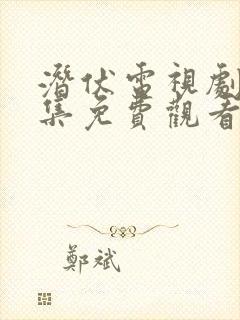 潛伏電視劇
集免費觀看
鄭斌